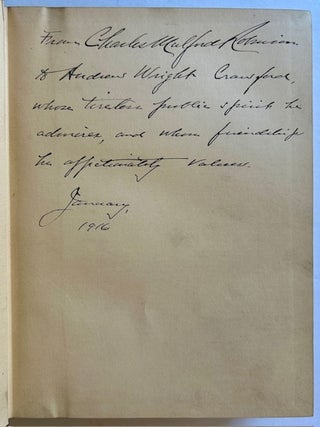 From Charles Mulford Robinson
to Andrew Wright Crawford,
whose tireless public spirit he
admires, and whose friendship
he affectionately values.
January,
1916